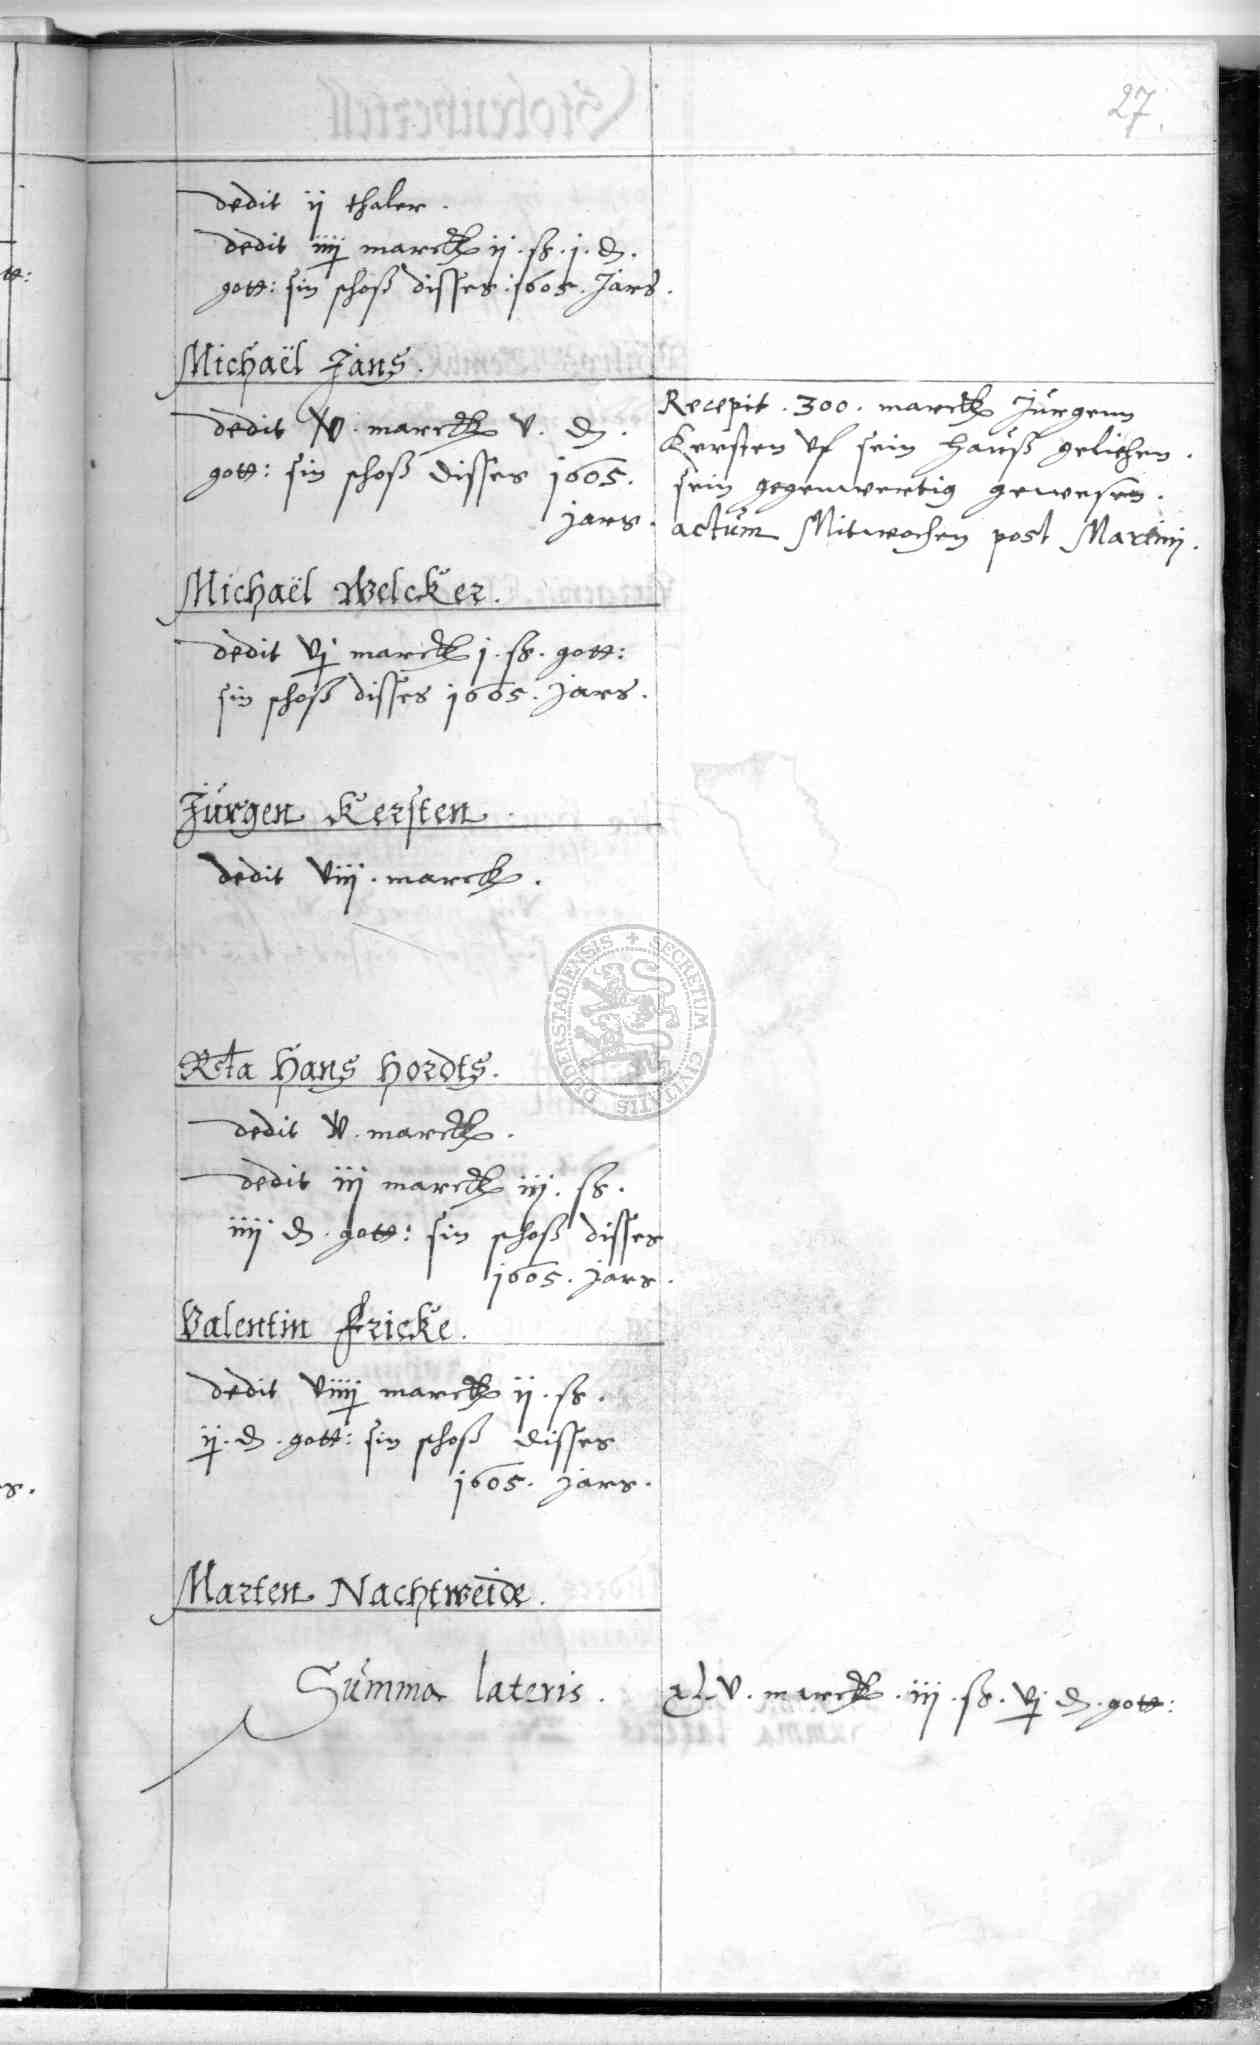 27.
dedit ij thaler.
dedit iiij marck ij. ß. j. d.
gott: sin schoß disses. 1605. Jars.
Michaël Jans.
dedit v. marck v. d.
gott: sin schoß disses 1605.
jars.
Recepit. 300. marck Jürgenn
Kersten vf sein hauß geliehen.
sein gegenwertig gewesen.
actum Mitwochen post Martinj.
Michaël Welcker.
dedit vj marck j. ß. gott:
sin schoß disses 1605. jars.
Jürgen Kersten.
dedit viij. marck.
Rcta Hans Hordts.
dedit v. marck.
dedit iij marck iij. ß.
iiij d. gott: sin schoß disses
1605. jars.
Valentin Fricke.
dedit viiij marck ij. ß.
ij. d. gott: sin schoß disses
1605. jars.
Marten Nachtweide.
Summa lateris. xLv. marck. iij. ß. vj d. gott:
SECRETUM CIVITATIS DUDERSTADIENSIS